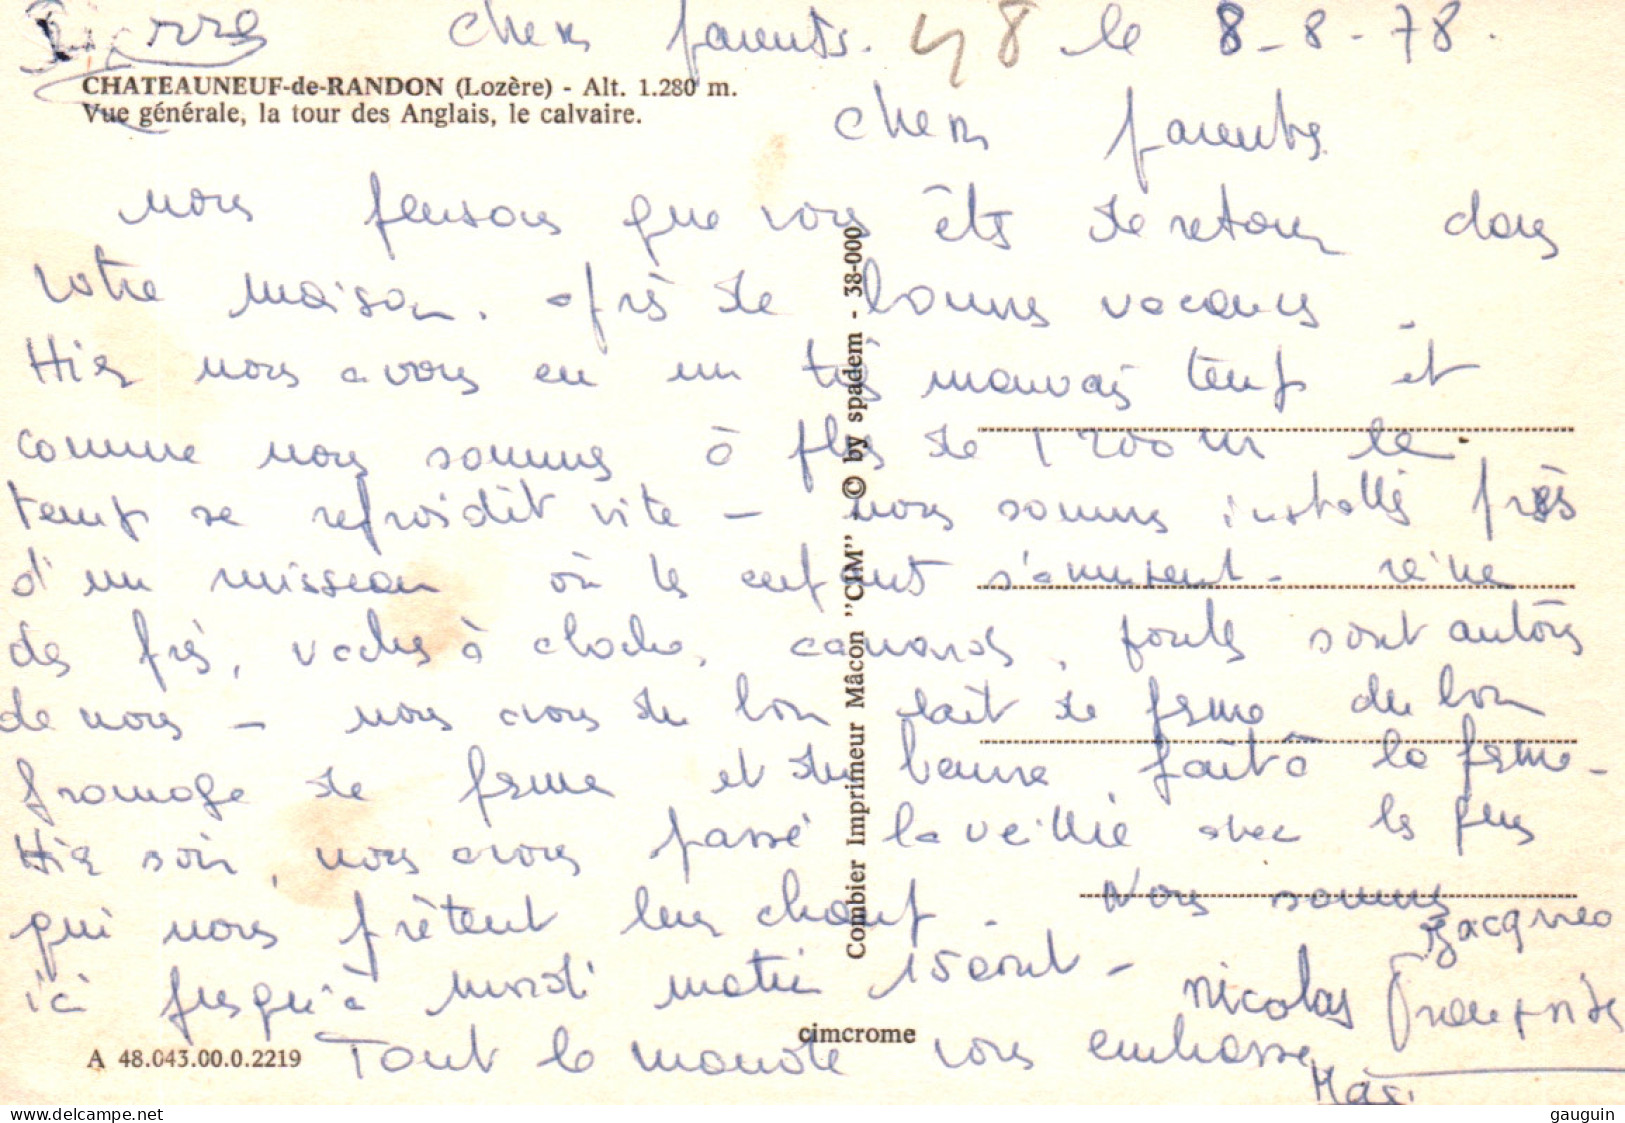 Pierre Chers parents. 48 le 8-8-78.
CHATEAUNEUF-de-RANDON (Lozère) - Alt. 1.280 m.
Vue générale, la tour des Anglais, le calvaire.
Chers parents
nous pensons que vous êts de retour dans
votre maison. après de bonnes vacances.
Hier nous avons eu un très mauvais temps et
comme nous sommes à plus de 1200 m le
temps se refroidit vite - nous sommes installés près
d'un ruisseau où les enfants s'amusent - reine
des prés, vaches à cloches, canards, poules sont autours
de nous - nous avons du bon lait de ferme du bon
fromage de ferme et du beurre fait à la ferme -
Hier soir, nous avons passé la veillée avec les gens
qui nous prêtent leur champ - Nous sommes
ici jusqu'à mardi matin 15 août -
Jacques
nicolas
Tout le monde vous embrasse
Combier Imprimeur Mâcon "CIM" - © by spadem - 38-000
cimcrome
A 48.043.00.0.2219
Tous droits réservés pour tout pays
gauguin